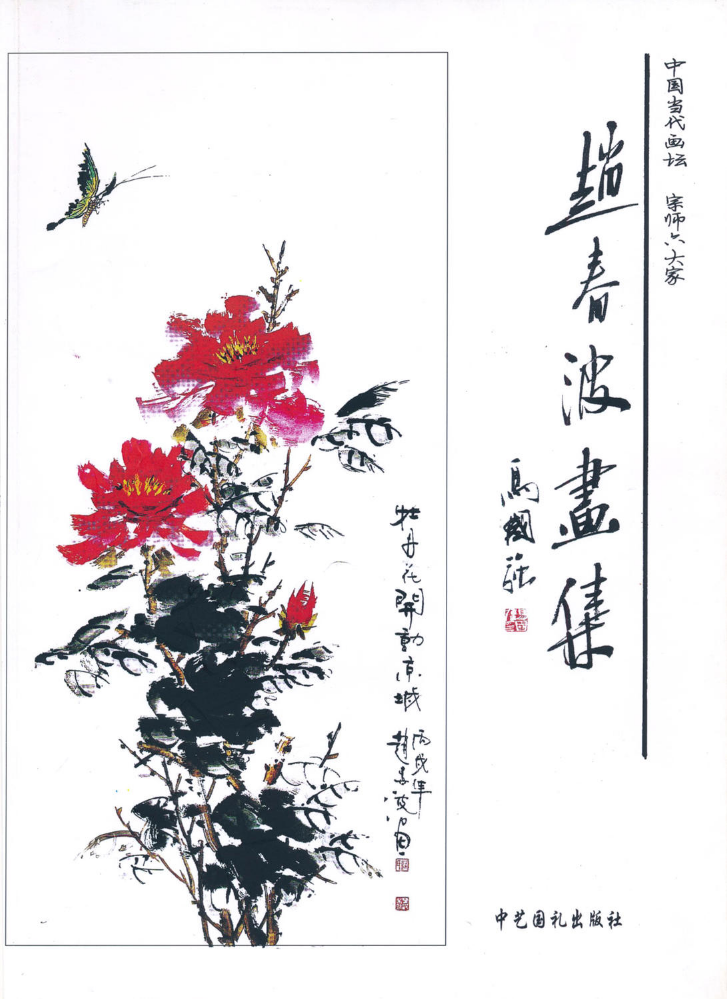 中国当代画坛 宗师六大家
趙春波畫集
馬國強
牡丹花開動京城
丙戌年
趙春波畫
中艺国礼出版社